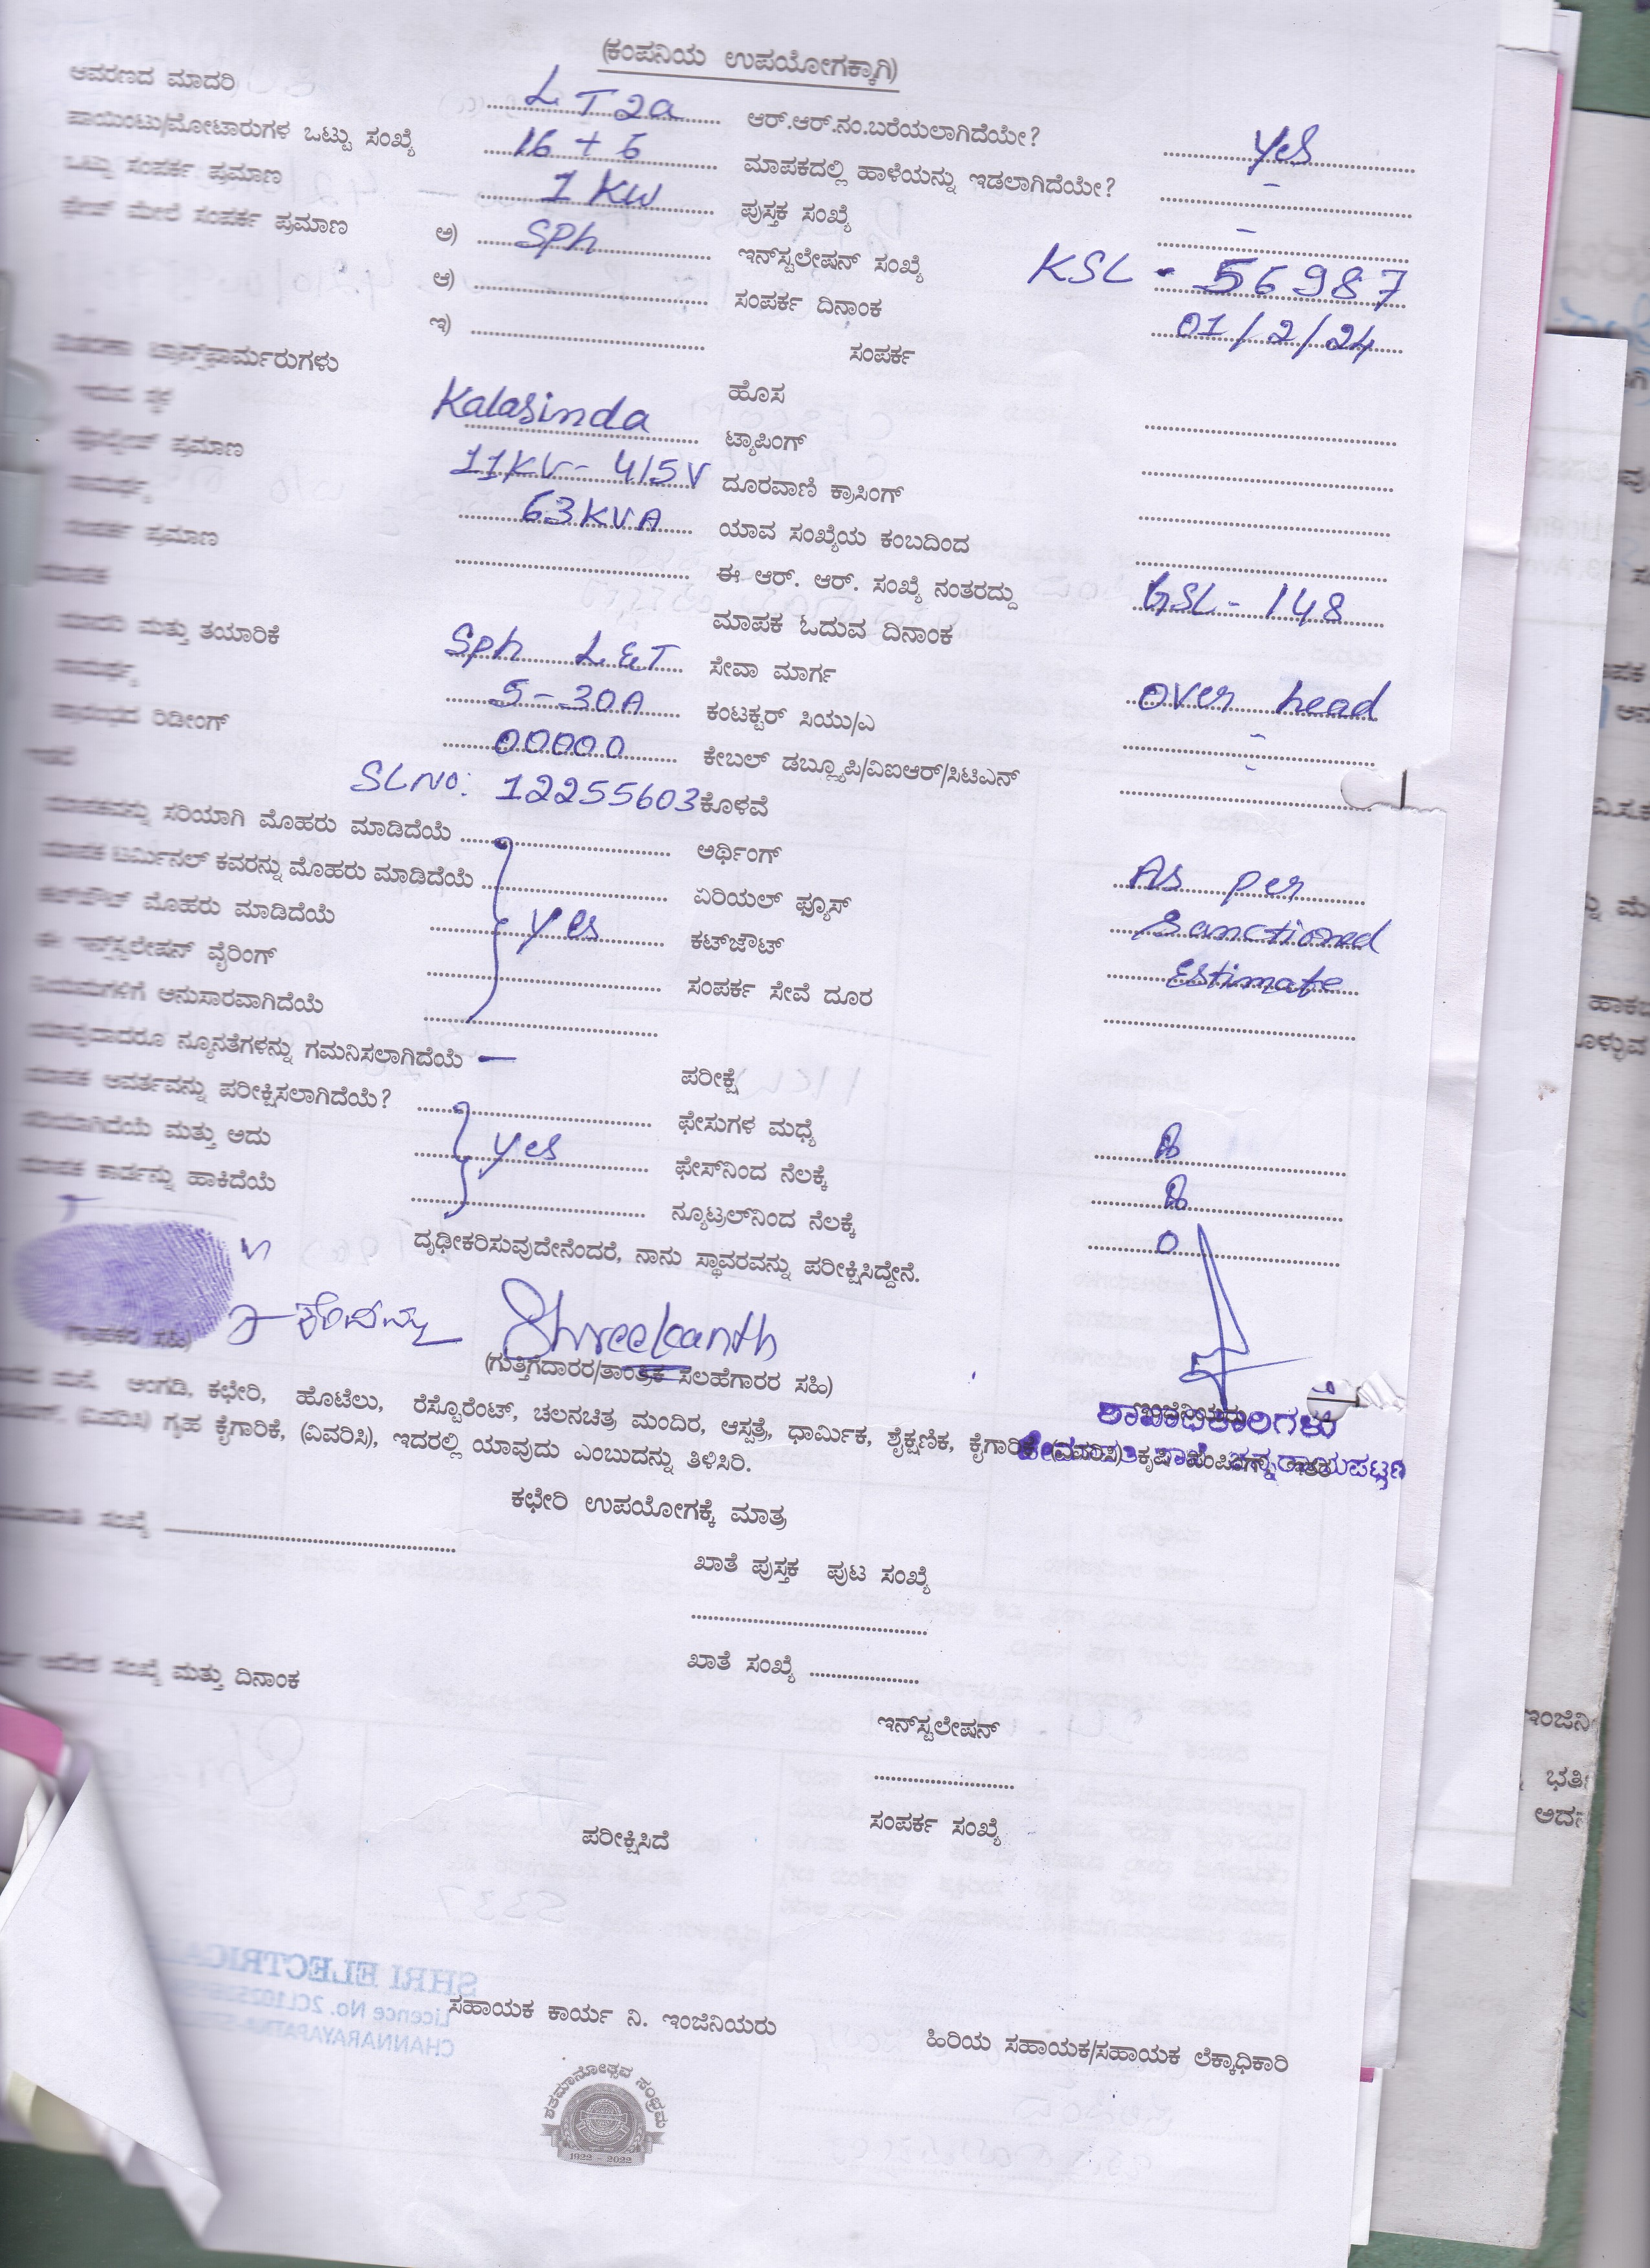 (ಕಂಪನಿಯ ಉಪಯೋಗಕ್ಕಾಗಿ)
ಆವರಣದ ಮಾದರಿ LT2a ಆರ್.ಆರ್.ನಂ.ಬರೆಯಲಾಗಿದೆಯೇ? yes
ಪಾಯಿಂಟು/ಮೋಟಾರುಗಳ ಒಟ್ಟು ಸಂಖ್ಯೆ 16 + 6 ಮಾಪಕದಲ್ಲಿ ಹಾಳೆಯನ್ನು ಇಡಲಾಗಿದೆಯೇ? -
ಒಟ್ಟು ಸಂಪರ್ಕ ಪ್ರಮಾಣ 1 KW ಪುಸ್ತಕ ಸಂಖ್ಯೆ -
ಮೇಲೆ ಸಂಪರ್ಕ ಪ್ರಮಾಣ ಅ) SPh ಇನ್‌ಸ್ಟಲೇಷನ್ ಸಂಖ್ಯೆ KSL - 56987
ಆ) ಸಂಪರ್ಕ ದಿನಾಂಕ 01/2/24
ಇ) ಸಂಪರ್ಕ
ಟ್ರಾನ್ಸ್‌ಫಾರ್ಮರುಗಳು ಹೊಸ
Kalasinda ಟ್ಯಾಪಿಂಗ್
ವೋಲ್ಟೇಜ್ ಪ್ರಮಾಣ 11KV- 415V ದೂರವಾಣಿ ಕ್ರಾಸಿಂಗ್
ಸಾಮರ್ಥ್ಯ 63KVA ಯಾವ ಸಂಖ್ಯೆಯ ಕಂಬದಿಂದ
ಸಂಪರ್ಕ ಪ್ರಮಾಣ ಈ ಆರ್. ಆರ್. ಸಂಖ್ಯೆ ನಂತರದ್ದು GSL - 148
ಮಾಪಕ ಮಾಪಕ ಓದುವ ದಿನಾಂಕ
ಮಾದರಿ ಮತ್ತು ತಯಾರಿಕೆ Sph L&T ಸೇವಾ ಮಾರ್ಗ over head
ಸಾಮರ್ಥ್ಯ 5-30A ಕಂಟಕ್ಟರ್ ಸಿಯು/ಎ -
ಪ್ರಾರಂಭದ ರಿಡೀಂಗ್ 00000 ಕೇಬಲ್ ಡಬ್ಲ್ಯೂಪಿ/ವಿಐಆರ್/ಸಿಟಿಎನ್ -
SLNO: 12255603 ಕೊಳವೆ
ಮಾಪಕವನ್ನು ಸರಿಯಾಗಿ ಮೊಹರು ಮಾಡಿದೆಯೆ ಅರ್ಥಿಂಗ್ As per
ಮಾಪಕ ಟರ್ಮಿನಲ್ ಕವರನ್ನು ಮೊಹರು ಮಾಡಿದೆಯೆ ಏರಿಯಲ್ ಫ್ಯೂಸ್ Sanctioned
ಕಟ್‌ಔಟ್ ಮೊಹರು ಮಾಡಿದೆಯೆ yes ಕಟ್‌ಜೌಟ್ Estimate
ಈ ಇನ್ಸ್‌ಸ್ಟಲೇಷನ್ ವೈರಿಂಗ್ ಸಂಪರ್ಕ ಸೇವೆ ದೂರ
ನಿಯಮಗಳಿಗೆ ಅನುಸಾರವಾಗಿದೆಯೆ
ಯಾವುದಾದರೂ ನ್ಯೂನತೆಗಳನ್ನು ಗಮನಿಸಲಾಗಿದೆಯೆ — ಪರೀಕ್ಷೆ
ಮಾಪಕ ಆವರ್ತವನ್ನು ಪರೀಕ್ಷಿಸಲಾಗಿದೆಯೆ? ಫೇಸುಗಳ ಮಧ್ಯೆ
ಸರಿಯಾಗಿದೆಯೆ ಮತ್ತು ಅದು yes ಫೇಸ್‌ನಿಂದ ನೆಲಕ್ಕೆ
ಮಾಪಕ ಕಾರ್ಡನ್ನು ಹಾಕಿದೆಯೆ ನ್ಯೂಟ್ರಲ್‌ನಿಂದ ನೆಲಕ್ಕೆ 0
ದೃಢೀಕರಿಸುವುದೇನೆಂದರೆ, ನಾನು ಸ್ಥಾವರವನ್ನು ಪರೀಕ್ಷಿಸಿದ್ದೇನೆ.
Shreekanth
(ಗ್ರಾಹಕರ ಸಹಿ) (ಗುತ್ತಿಗೆದಾರರ/ತಾಂತ್ರಿಕ ಸಲಹೆಗಾರರ ಸಹಿ)
ಶಾಖಾಧಿಕಾರಿಗಳು
ಮನೆ, ಅಂಗಡಿ, ಕಛೇರಿ, ಹೊಟೆಲು, ರೆಸ್ಟೊರೆಂಟ್, ಚಲನಚಿತ್ರ ಮಂದಿರ, ಆಸ್ಪತ್ರೆ, ಧಾರ್ಮಿಕ, ಶೈಕ್ಷಣಿಕ, ಕೈಗಾರಿಕೆ (ವಿವರಿಸಿ) ಕೃಷಿ
(ವಿವರಿಸಿ) ಗೃಹ ಕೈಗಾರಿಕೆ, (ವಿವರಿಸಿ), ಇದರಲ್ಲಿ ಯಾವುದು ಎಂಬುದನ್ನು ತಿಳಿಸಿರಿ.
ಕಛೇರಿ ಉಪಯೋಗಕ್ಕೆ ಮಾತ್ರ
ಸಂಖ್ಯೆ ಖಾತೆ ಪುಸ್ತಕ ಪುಟ ಸಂಖ್ಯೆ
ಆದೇಶ ಸಂಖ್ಯೆ ಮತ್ತು ದಿನಾಂಕ ಖಾತೆ ಸಂಖ್ಯೆ
ಇನ್‌ಸ್ಟಲೇಷನ್
ಪರೀಕ್ಷಿಸಿದೆ ಸಂಪರ್ಕ ಸಂಖ್ಯೆ
SHRI ELECTRICA
Licence No.
CHANNARAYAPATNA
ಸಹಾಯಕ ಕಾರ್ಯ ನಿ. ಇಂಜಿನಿಯರು ಹಿರಿಯ ಸಹಾಯಕ/ಸಹಾಯಕ ಲೆಕ್ಕಾಧಿಕಾರಿ
ಶತಮಾನೋತ್ಸವ ಸಂಭ್ರಮ
1922 - 2022